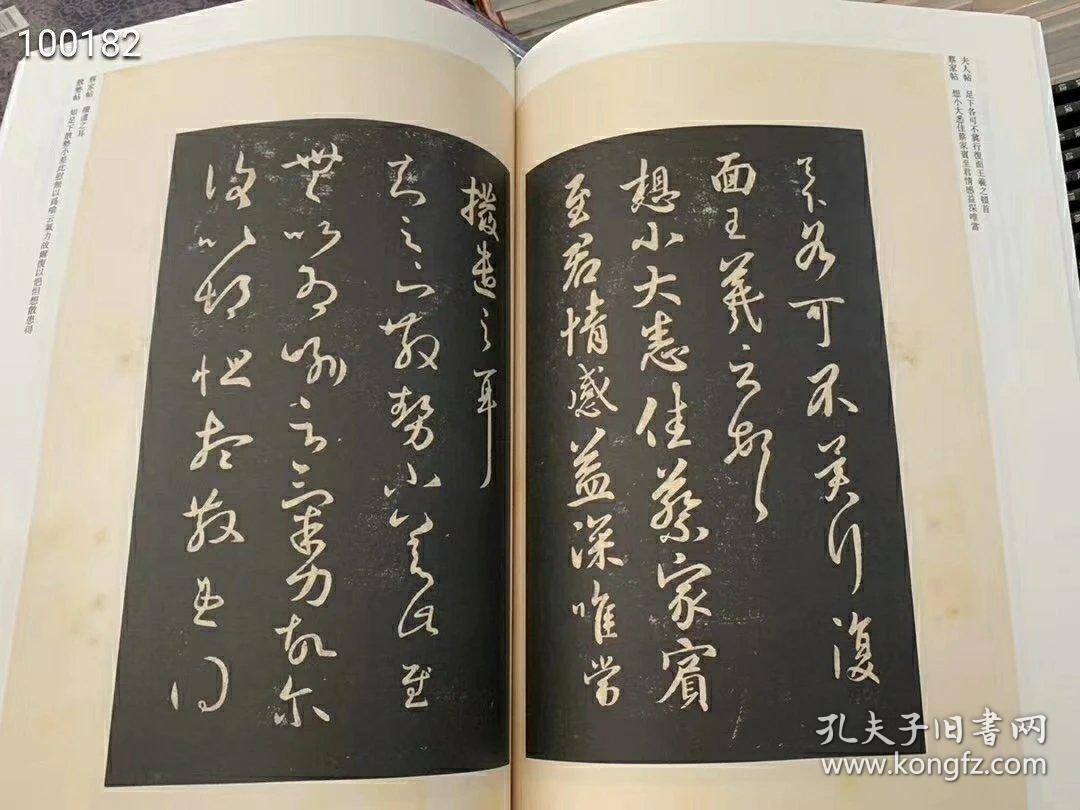 100182
夫人帖 足下各可不冀行復面王羲之頓首
蔡家帖 想小大悉佳蔡家賓至君情感益深唯當
足下各可不冀行復
面王羲之頓首
想小大悉佳蔡家賓
至君情感益深唯當
撥遣之耳
知足下散勢小差此慰
無以為喻云氣力故爾
復以悒怛想散患得
蔡家帖 撥遣之耳
散勢帖 知足下散勢小差此慰無以爲喻云氣力故爾復以悒怛想散患得
孔夫子旧书网
www.kongfz.com